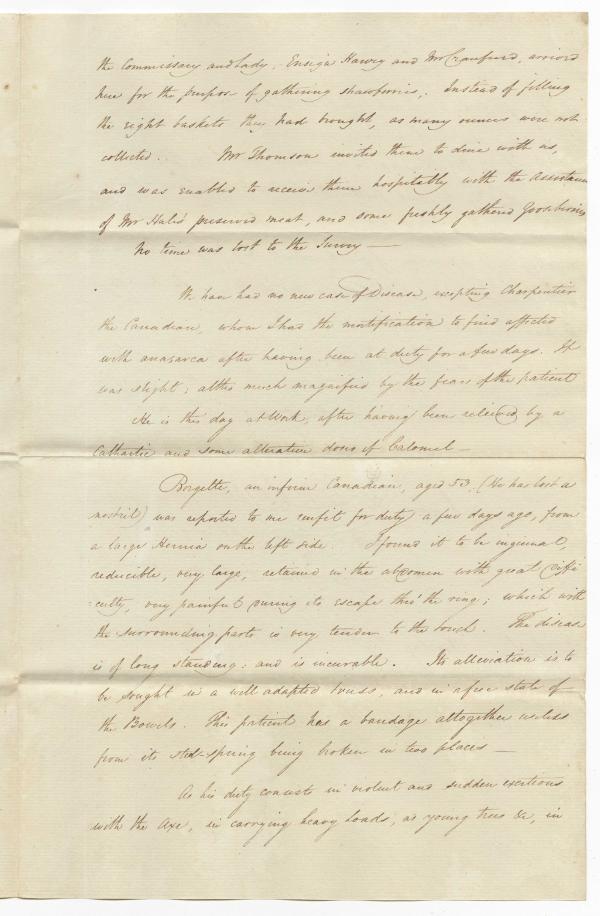 the Commissary and Lady, Ensign Harvey and Mr Craufurd, arrived
here for the purpose of gathering strawberries,. Instead of filling
the eight baskets they had brought, as many ounces were not
collected. Mr Thomson invited them to dine with us,
and was enabled to receive them hospitably with the Assistance
of Mr Hale's preserved meat, and some freshly gathered Gooseberries
No time was lost to the Survey —
We have had no new case of Disease, excepting Charpentier
the Canadian, whom I had the mortification to find affected
with anasarca after having been at duty for a few days. It
was slight; altho much magnified by the fears of the patient
He is this day at Work, after having been relieved by a
Cathartic and some alterative doses of Calomel —
Borgette, an infirm Canadian, aged 53, (He has lost a
nostril) was reported to me unfit for duty a few days ago, from
a large Hernia on the left side. I found it to be inguinal,
reducible, very large, retained in the abdomen with great diffi
=culty, very painful during its escape thro' the ring; which with
the surrounding parts is very tender to the touch. The disease
is of long standing: and is incurable. Its alleviation is to
be sought in a well adapted truss, and in a free state of
the Bowels. This patient has a bandage altogether useless
from its steel-spring being broken in two places —
As his duty consists in violent and sudden exertions
with the Axe, in carrying heavy loads, as young trees &c, in